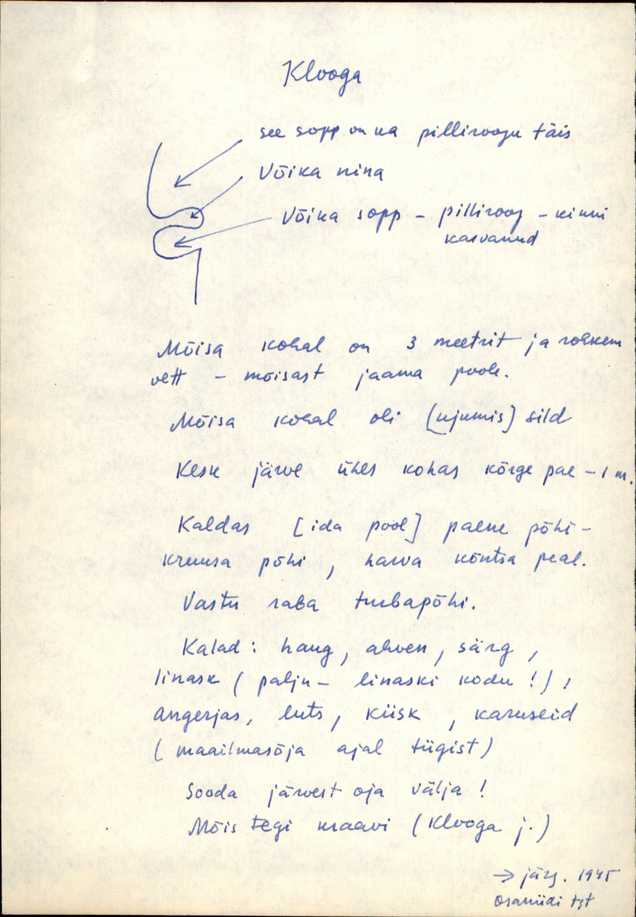 Klooga
see sopp on ka pilliroogu täis
Võika nina
Võika sopp – pilliroog – kinni
kasvanud
Mõisa kohal on 3 meetrit ja rohkem
vett – mõisast jaama poole.
Mõisa kohal oli [ujumis] sild
Kesk järve ühes kohas kõrge pae – 1 m.
Kaldas [ida pool] paene põhi –
kruusa põhi, harva kõntsa peal.
Vastu raba turbapõhi.
Kalad: haug, ahven, särg,
linask (palju – linaski kodu!),
angerjas, luts, kiisk, karuseid
(maailmasõja ajal tiigist)
Sooda järvest oja välja!
Mõis tegi kraavi (Klooga j.)
→ järg. 1945